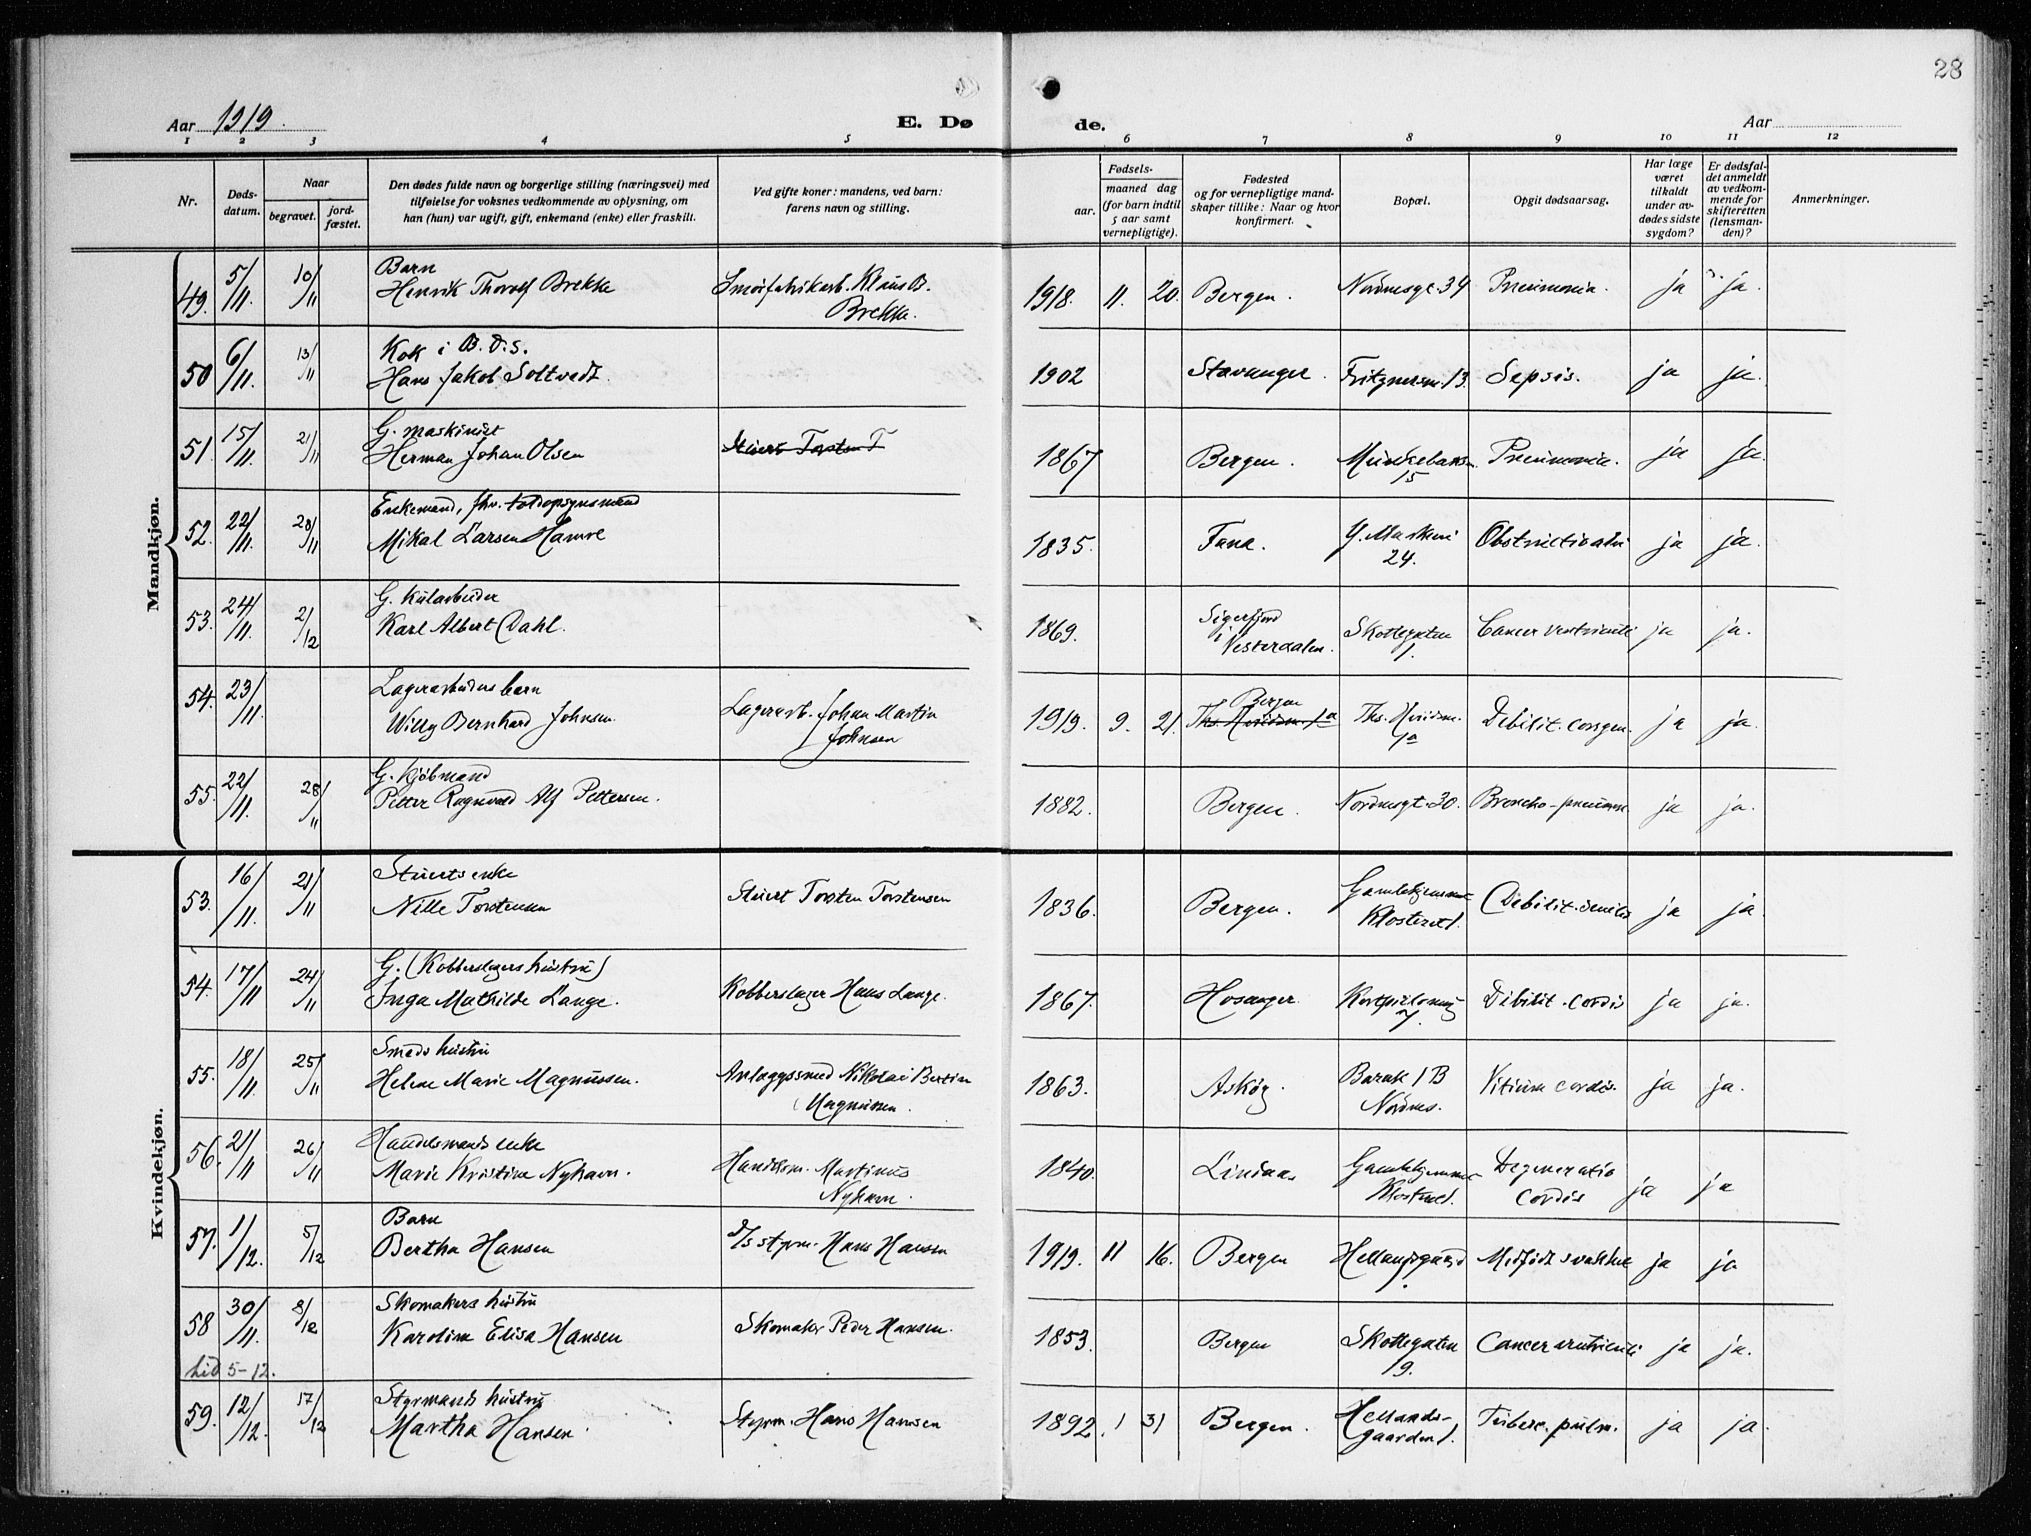 28
Aar 1919.
E. Dø
de.
Aar
1 2 3 4 5 6 7 8 9 10 11 12
Nr.
Døds-
datum.
Naar
begravet.
jord-
fæstet.
Den dødes fulde navn og borgerlige stilling (næringsvei) med
tilføielse for voksnes vedkommende av oplysning, om
han (hun) var ugift, gift, enkemand (enke) eller fraskilt.
Ved gifte koner: mandens, ved barn:
farens navn og stilling.
Fødsels-
aar.
maaned dag
(for barn indtil
5 aar samt
vernepligtige).
Fødested
og for vernepligtige mand-
skaper tillike: Naar og hvor
konfirmert.
Bopæl.
Opgit dødsaarsag.
Har læge
været
tilkaldt
under av-
dødes sidste
sygdom?
Er dødsfal-
det anmeldt
av vedkom-
mende for
skifteretten
(lensman-
den)?
Anmerkninger.
Mandkjøn.
49. 5/11. 10/11 Barn
Henrik Thorolf Brekke
Smørfabrikarb. Klaus B.
Brekke.
1918. 11. 20. Bergen. Nordnesgt. 34 Pneumonia. ja ja.
50 6/11. 13/11 Kok i B.D.S.
Hans Jakob Soltvedt.
1902 Stavanger. 13. Sepsis. ja ja.
51. 15/11. 21/11 G. maskinist
Herman Johan Olsen
Stuert Torsten T
1867 Bergen. 15 Pneumonia. ja ja.
52. 22/11. 28/11 Enkemand, fhv. toldopsynsmand
Mikal Larsen Hamre
1835. Fana. Y. Markevei
24. ja ja.
53. 24/11. 2/12 G. Kularbeider
Karl Albert Dahl.
1869. Sigerfjord
i Vesteraalen.
Skottegaten
1. Cancer ventriculi ja ja.
54. 23/11. Lagerarbeiders barn
Willy Bernhard Johnsen.
Lagerarb. Johan Martin
Johnsen
1919. 9. 21. Bergen
1a
1a Debilit. congen. ja ja.
55. 22/11. 28/11 G. Kjøbmand
Petter Ragnvald Alf Pettersen.
1882. Bergen. Nordnesgt. 30. Broncho-pneumon. ja ja.
Kvindekjøn.
53. 16/11. 21/11 Stuerts enke
Nille Torstensen
Stuert Torsten Torstensen
1836. Bergen. Gamlehjemmet
Klosteret. Debilit. senilis ja ja.
54. 17/11 24/11 G. (Kobberslagers hustru)
Inga Mathilde Lange.
Kobberslager Hans Lange.
1867. Hosanger.
7. Debilit. cordis ja ja.
55. 18/11. 25/11 Smeds hustru
Helene Marie Magnussen.
Anlæggssmed Nikolai Bertin
Magnussen.
1863. Askøy. Barak 1 B
Nordnes. Vitium cordis. ja ja.
56. 21/11 26/11 Handelsmands enke
Marie Kristine Nyhavn.
Handelsm. Martinus
Nyhavn.
1840. Lindaas Gamlehjemmet
Klosteret. Degeneratio
cordis ja ja
57. 1/12. 5/12 Barn
Bertha Hansen
D/S styrm. Hans Hansen
1919. 11 16. Bergen Hellandsgaard Medfødt svakhet ja ja
58 30/11. 8/12 Skomakers hustru
Karoline Elisa Hansen
Skomaker Peder Hansen.
1853. Bergen Skottegaten
19. Cancer ventriculi ja ja.
5-12.
59. 12/12. 17/12 Styrmands hustru
Martha Hansen.
Styrm. Hans Hansen
1892. 1 31 Bergen. Hellands-
gaarden 1. Tuberc. pulm. ja ja.